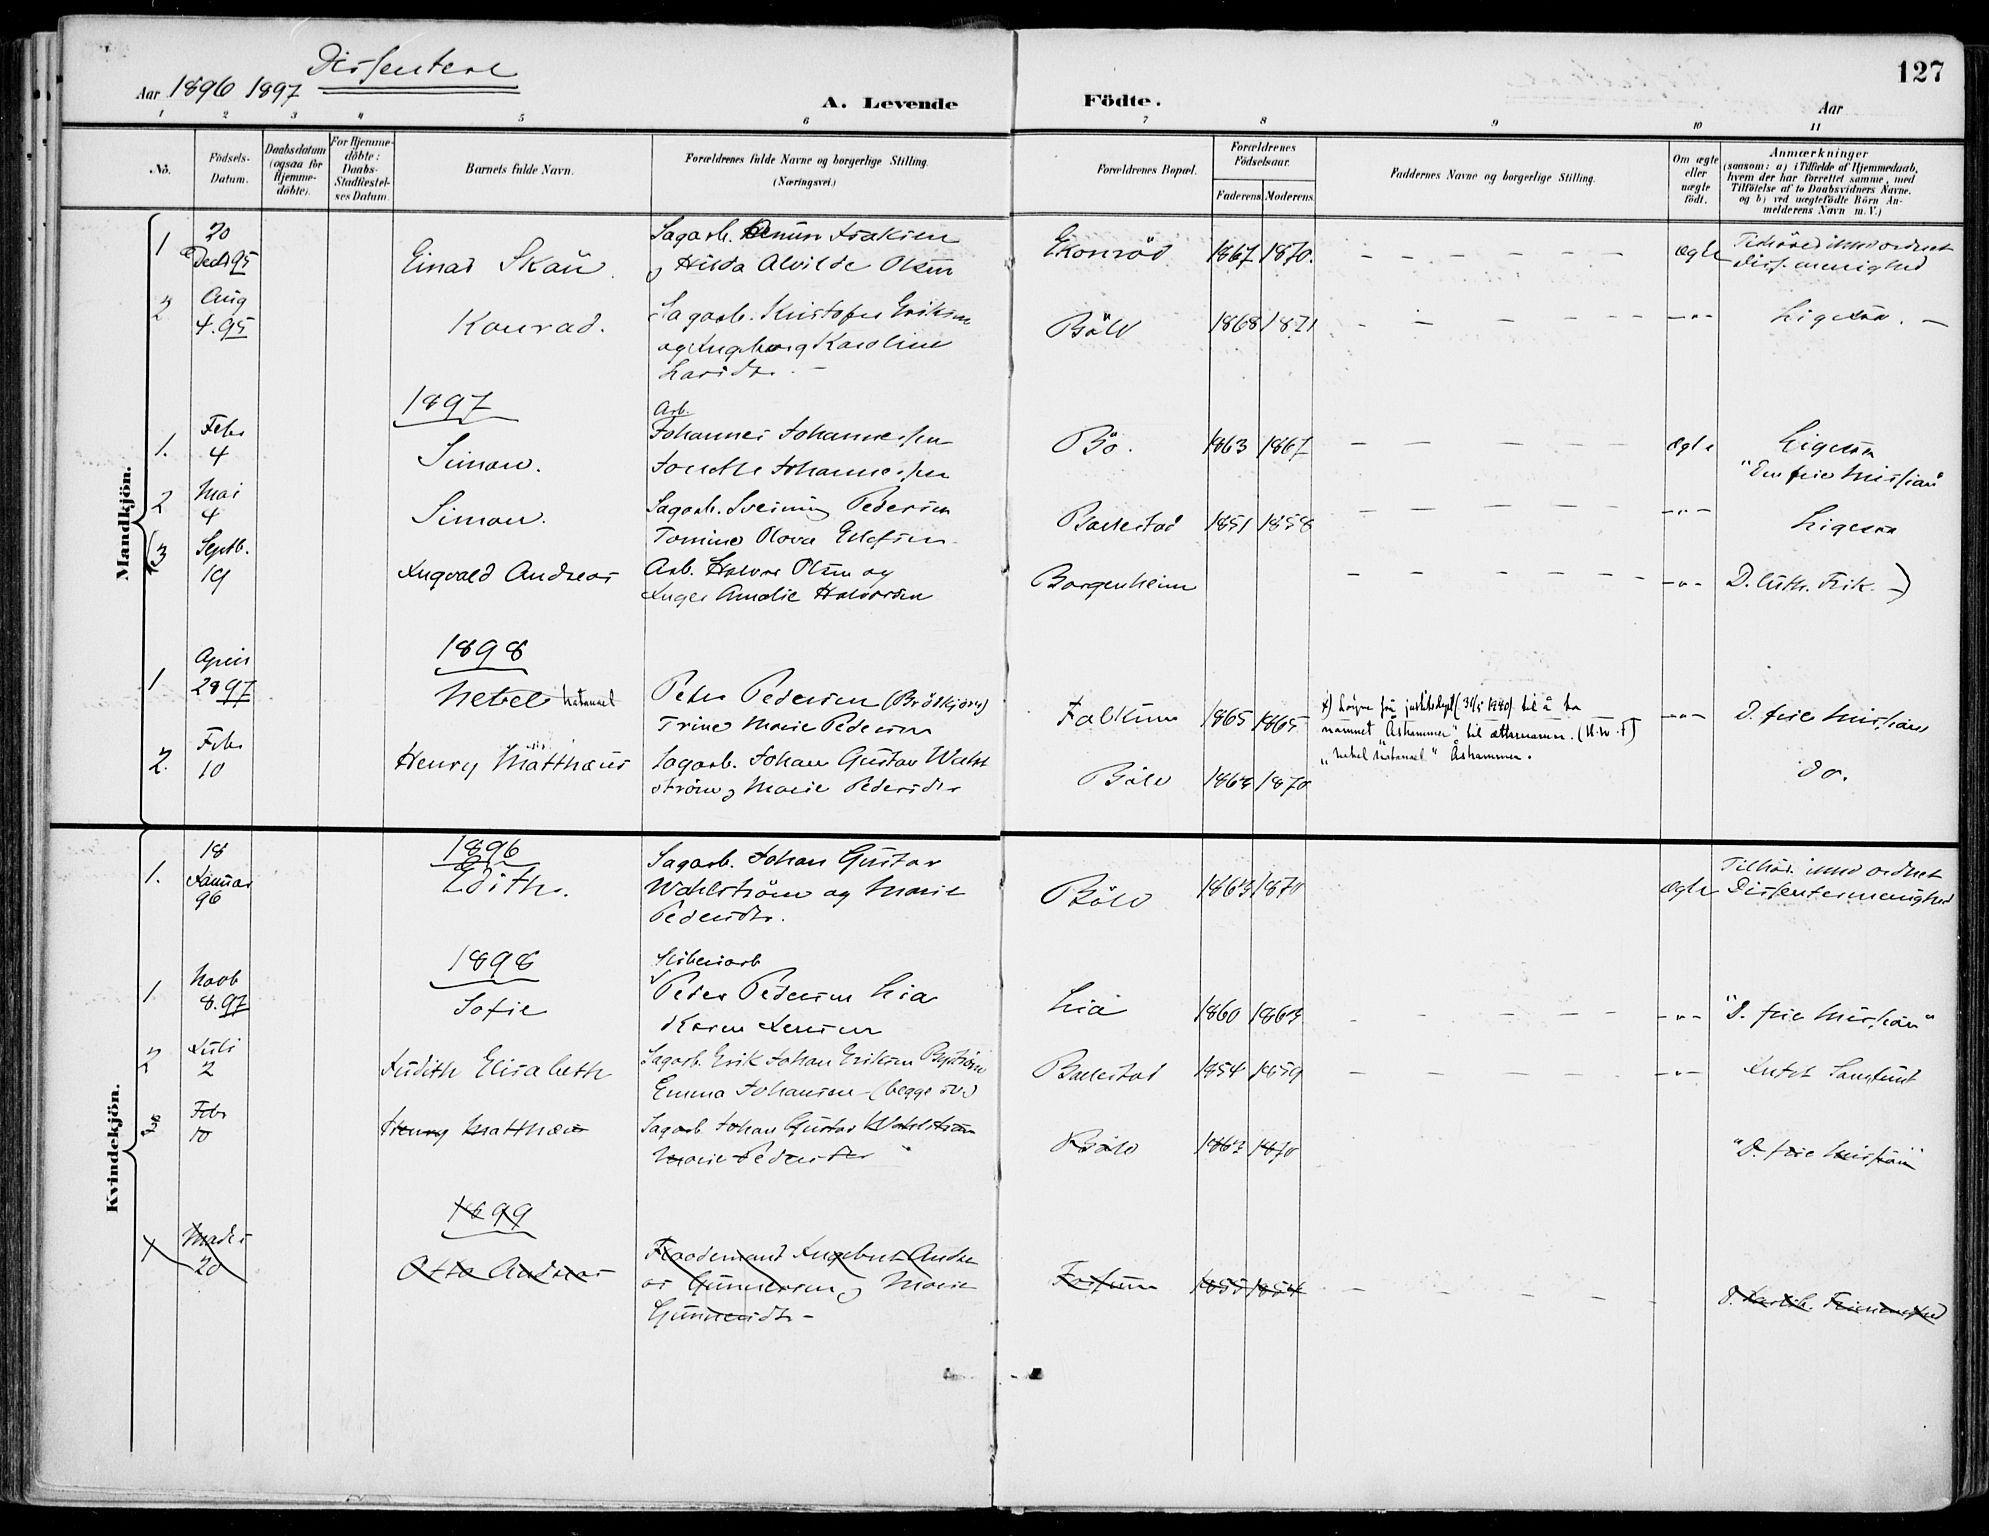 Dissentere
Aar 1896 1897
A. Levende Födte.
127
Aar
1 2 3 4 5 6 7 8 9 10 11
No.
Födsels-Datum.
Daabsdatum (ogsaa for Hjemme-döbte).
For Hjemme-döbte: Daabs-Stadfæstel-ses Datum.
Barnets fulde Navn.
Forældrenes fulde Navne og borgerlige Stilling.
(Næringsvei.)
Forældrenes Bopæl.
Forældrenes Födselsaar.
Faderens Moderens
Faddernes Navne og borgerlige Stilling.
Om ægte eller uægte födt.
Anmærkninger
(saasom: a) i Tilfælde af Hjemmedaab,
hvem der har forrettet samme, med
Tilföielse af to Daabsvidners Navne.
og b) ved uægtefödte Börn An-
melderens Navn m. V.)
Mandkjön.
1 20 Decb 95 Einar Skau.
Sagarb. Isaksen
og Hilda Alvilde Olsen
1867 1870. ægte
2 Aug 4.95 Konrad.
Sagarb. Kristofer Eriksen
og Ingeborg Karoline
Larsdtr. –
Böle 1868 1871 – " – Ligesaa. –
1897
1. Febr 4 Simon.
Arb.
Johannes Johannessen
Johannessen
Bö. 1863 1867 ægte Ligesaa
"Den frie Mission"
2 Mai 4 Simon.
Sagarb. Sveinung Pedersen
Tomine Olava Ellefsen
1851 1858 – " – Ligesaa
(3 Septb. 19 Ingvald Andreas
Arb. Halvor Olsen og
Inger Amalie Halvorsen
Borgenheim – " – D. luth. Frik. –)
1898
1 April 28 97 Natanael
Peter Pedersen (Brödkjörer)
Trine Marie Pedersen
Falkum 1865 1865
x) Löyve frå justisdept. (31/5 1940) til å ta
namnet "Åshammer" til ættarnamn.
Natanael" Åshammer.
– " – D. frie Mission
2. Febr 10 Henry Matthæus
Sagarb. Johan Gustav Wahl
ström og Marie Pedersdtr
Böle 1863 1870 do.
Kvindekjön.
1896
1. 18 Januar 96 Edith.
Sagarb. Johan Gustav
Wahlström og Marie
Pedersdtr.
Böle 1863 1870 ægte
Tilhör. ordnet
Dissentermenighed
1898
1 Novb 8.97 Sofie
Sliberiarb
Peder Pedersen Lia
Karen Jensen
Lia 1860 1864 – " – "D. frie Mission"
2 Juli 2 Judith Elisabeth
Sagarb. Erik Johan Eriksen
Emma Johansen – (begge sv.)
1854 1859 – " –
Febr 10 Henry Matthæus
Sagarb. Johan Gustav Wahlström
Marie Pedersdtr
Böle 1863 1870 "D. frie Mission"
1899
1 20 Otto Andreas
Ingebret Andre
as Gundersen og Marie
Gundersdtr –
Fossum 1855 1854